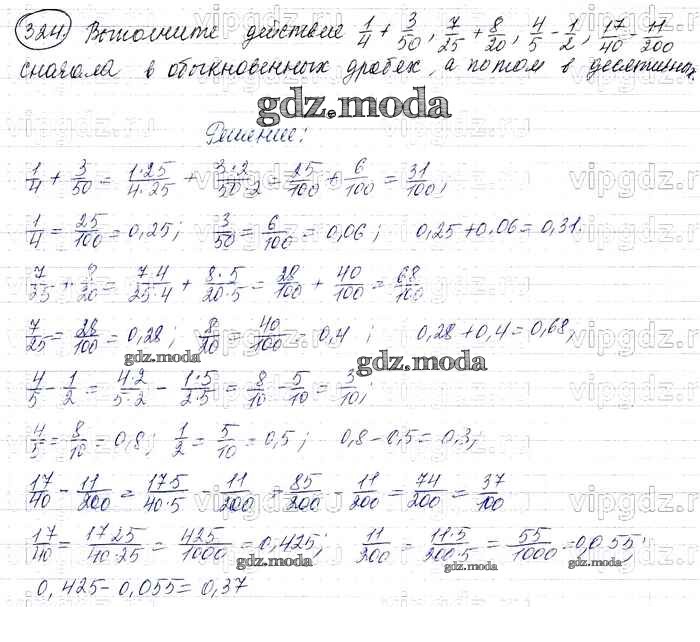 324. Выполните действие 1/4 + 3/50, 7/25 + 8/20, 4/5 - 1/2, 17/40 - 11/200
сначала в обыкновенных дробях, а потом в десятичных
gdz.moda
Решение:
1/4 + 3/50 = 1·25/4·25 + 3·2/50·2 = 25/100 + 6/100 = 31/100,
1/4 = 25/100 = 0,25; 3/50 = 6/100 = 0,06; 0,25 + 0,06 = 0,31.
7/25 + 8/20 = 7·4/25·4 + 8·5/20·5 = 28/100 + 40/100 = 68/100
7/25 = 28/100 = 0,28; 8/20 = 40/100 = 0,4; 0,28 + 0,4 = 0,68;
gdz.moda gdz.moda gdz.moda
4/5 - 1/2 = 4·2/5·2 - 1·5/2·5 = 8/10 - 5/10 = 3/10;
4/5 = 8/10 = 0,8; 1/2 = 5/10 = 0,5; 0,8 - 0,5 = 0,3;
17/40 - 11/200 = 17·5/40·5 - 11/200 = 85/200 - 11/200 = 74/200 = 37/100
17/40 = 17·25/40·25 = 425/1000 = 0,425; 11/200 = 11·5/200·5 = 55/1000 = 0,055;
gdz.moda gdz.moda
0,425 - 0,055 = 0,37
vipgdz.ru